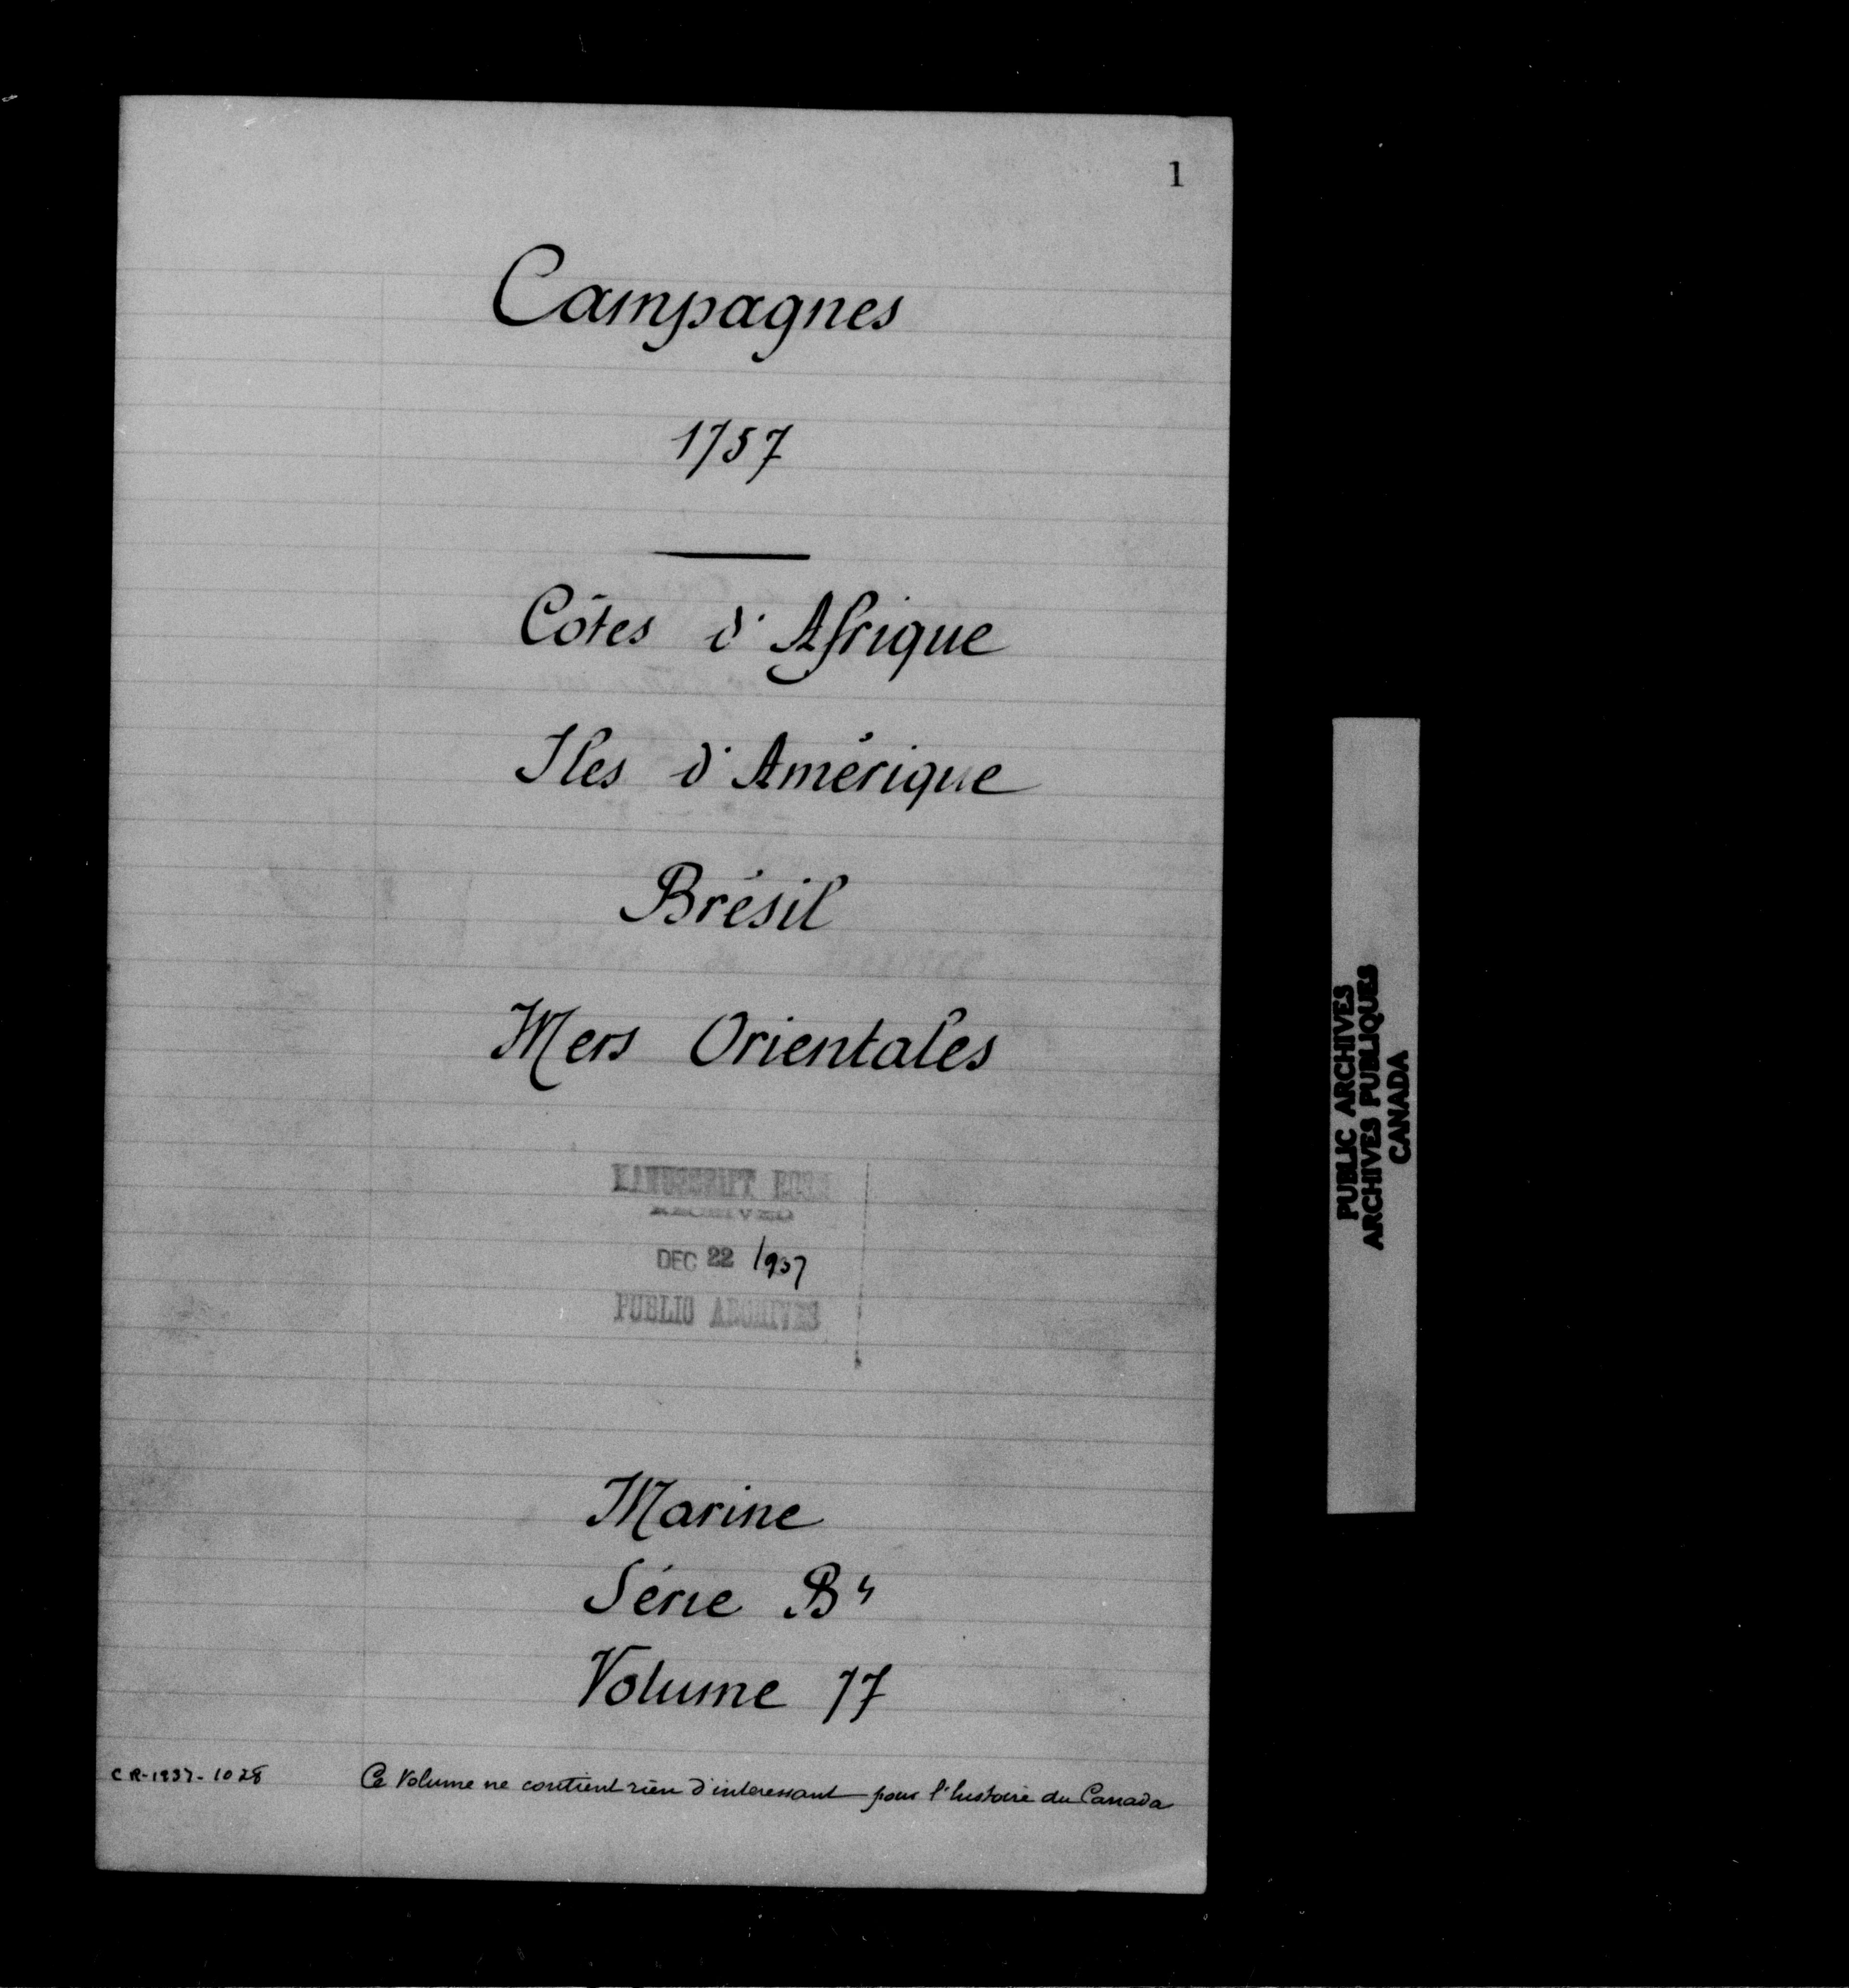 1
Campagnes
1757
Côtes d'Afrique
Iles d'Amérique
Brésil
Mers Orientales
MANUSCRIPT ROOM
RECEIVED
DEC 22 1937
PUBLIC ARCHIVES
Marine
Série B4
Volume 77
CR-1937-1028
Ce Volume ne contient rien d'interessant pour l'histoire du Canada
PUBLIC ARCHIVES
ARCHIVES PUBLIQUES
CANADA